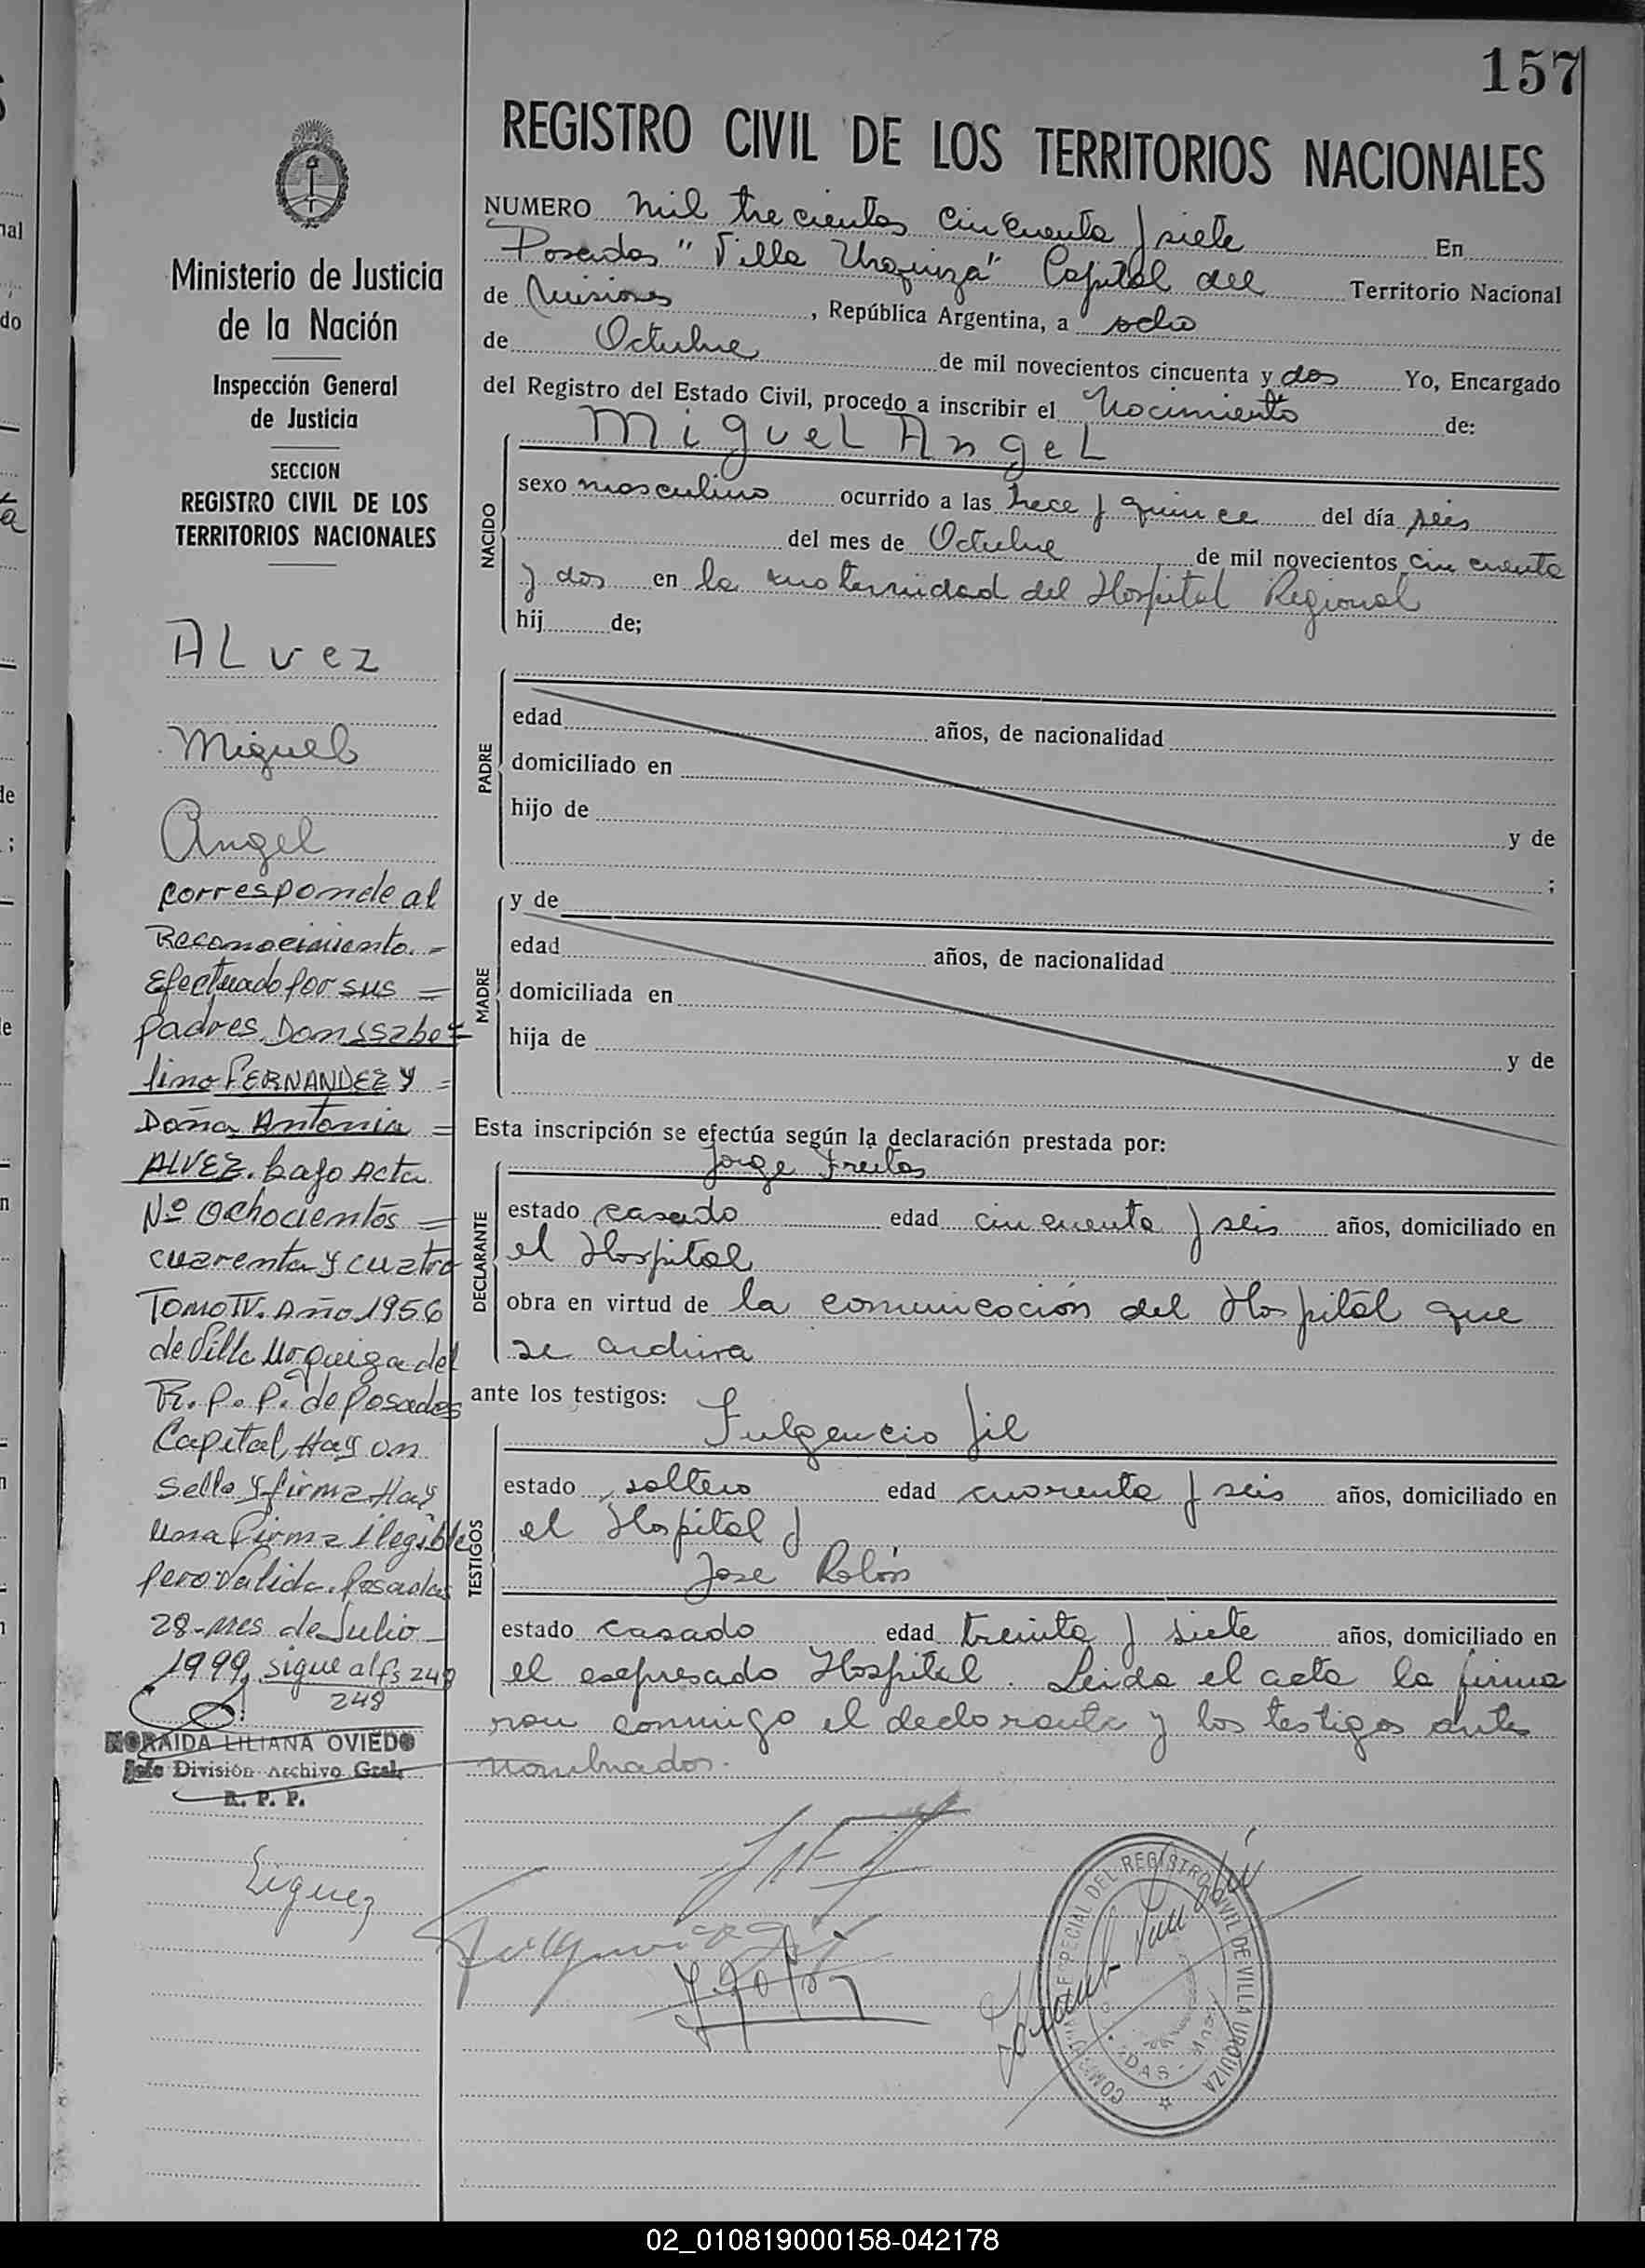 157
REGISTRO CIVIL DE LOS TERRITORIOS NACIONALES
Ministerio de Justicia
de la Nación
Inspección General
de Justicia
SECCION
REGISTRO CIVIL DE LOS
TERRITORIOS NACIONALES
ALvez
Miguel
Angel
corresponde al
Reconocimiento.=
Efectuado por sus =
padres Don
lino FERNANDEZ y =
Doña Antonia =
ALVEZ. bajo Acta
Nº Ochocientos =
cuarenta y cuatro
Tomo IV. Año 1956
de Villa Urquiza del
R.P.P. de Posadas
Capital Hay un
Sello y firma Hay
una Firma ilegible
pero valida. Posadas
28-mes de Julio
1999, sigue al fs 249
248
NORAIDA LILIANA OVIEDO
Jefe División Archivo Gral.
R. P. P.
NUMERO mil trecientos cincuenta y siete En
Posadas "Villa Urquiza" Capital del Territorio Nacional
de Misiones, República Argentina, a ocho
de Octubre de mil novecientos cincuenta y dos Yo, Encargado
del Registro del Estado Civil, procedo a inscribir el Nacimiento de:
Miguel Angel
NACIDO
sexo masculino ocurrido a las trece y quince del día seis
del mes de Octubre de mil novecientos cincuenta
y dos en la maternidad del Hospital Regional
hij de;
PADRE
edad años, de nacionalidad
domiciliado en
hijo de y de
;
MADRE
y de
edad años, de nacionalidad
domiciliada en
hija de y de
Esta inscripción se efectúa según la declaración prestada por:
Jorge Freitas
DECLARANTE
estado casado edad cincuenta y seis años, domiciliado en
el Hospital
obra en virtud de la comunicación del Hospital que
se archiva
ante los testigos:
Fulgencio Gil
TESTIGOS
estado soltero edad cuarenta y seis años, domiciliado en
el Hospital y
Jose Rolón
estado casado edad treinta y siete años, domiciliado en
el esepresado Hospital. Leida el acta la firma
ron conmigo el declarante y los testigos antes
nombrados.
REGISTRO CIVIL DE VILLA URQUIZA
02_010819000158-042178